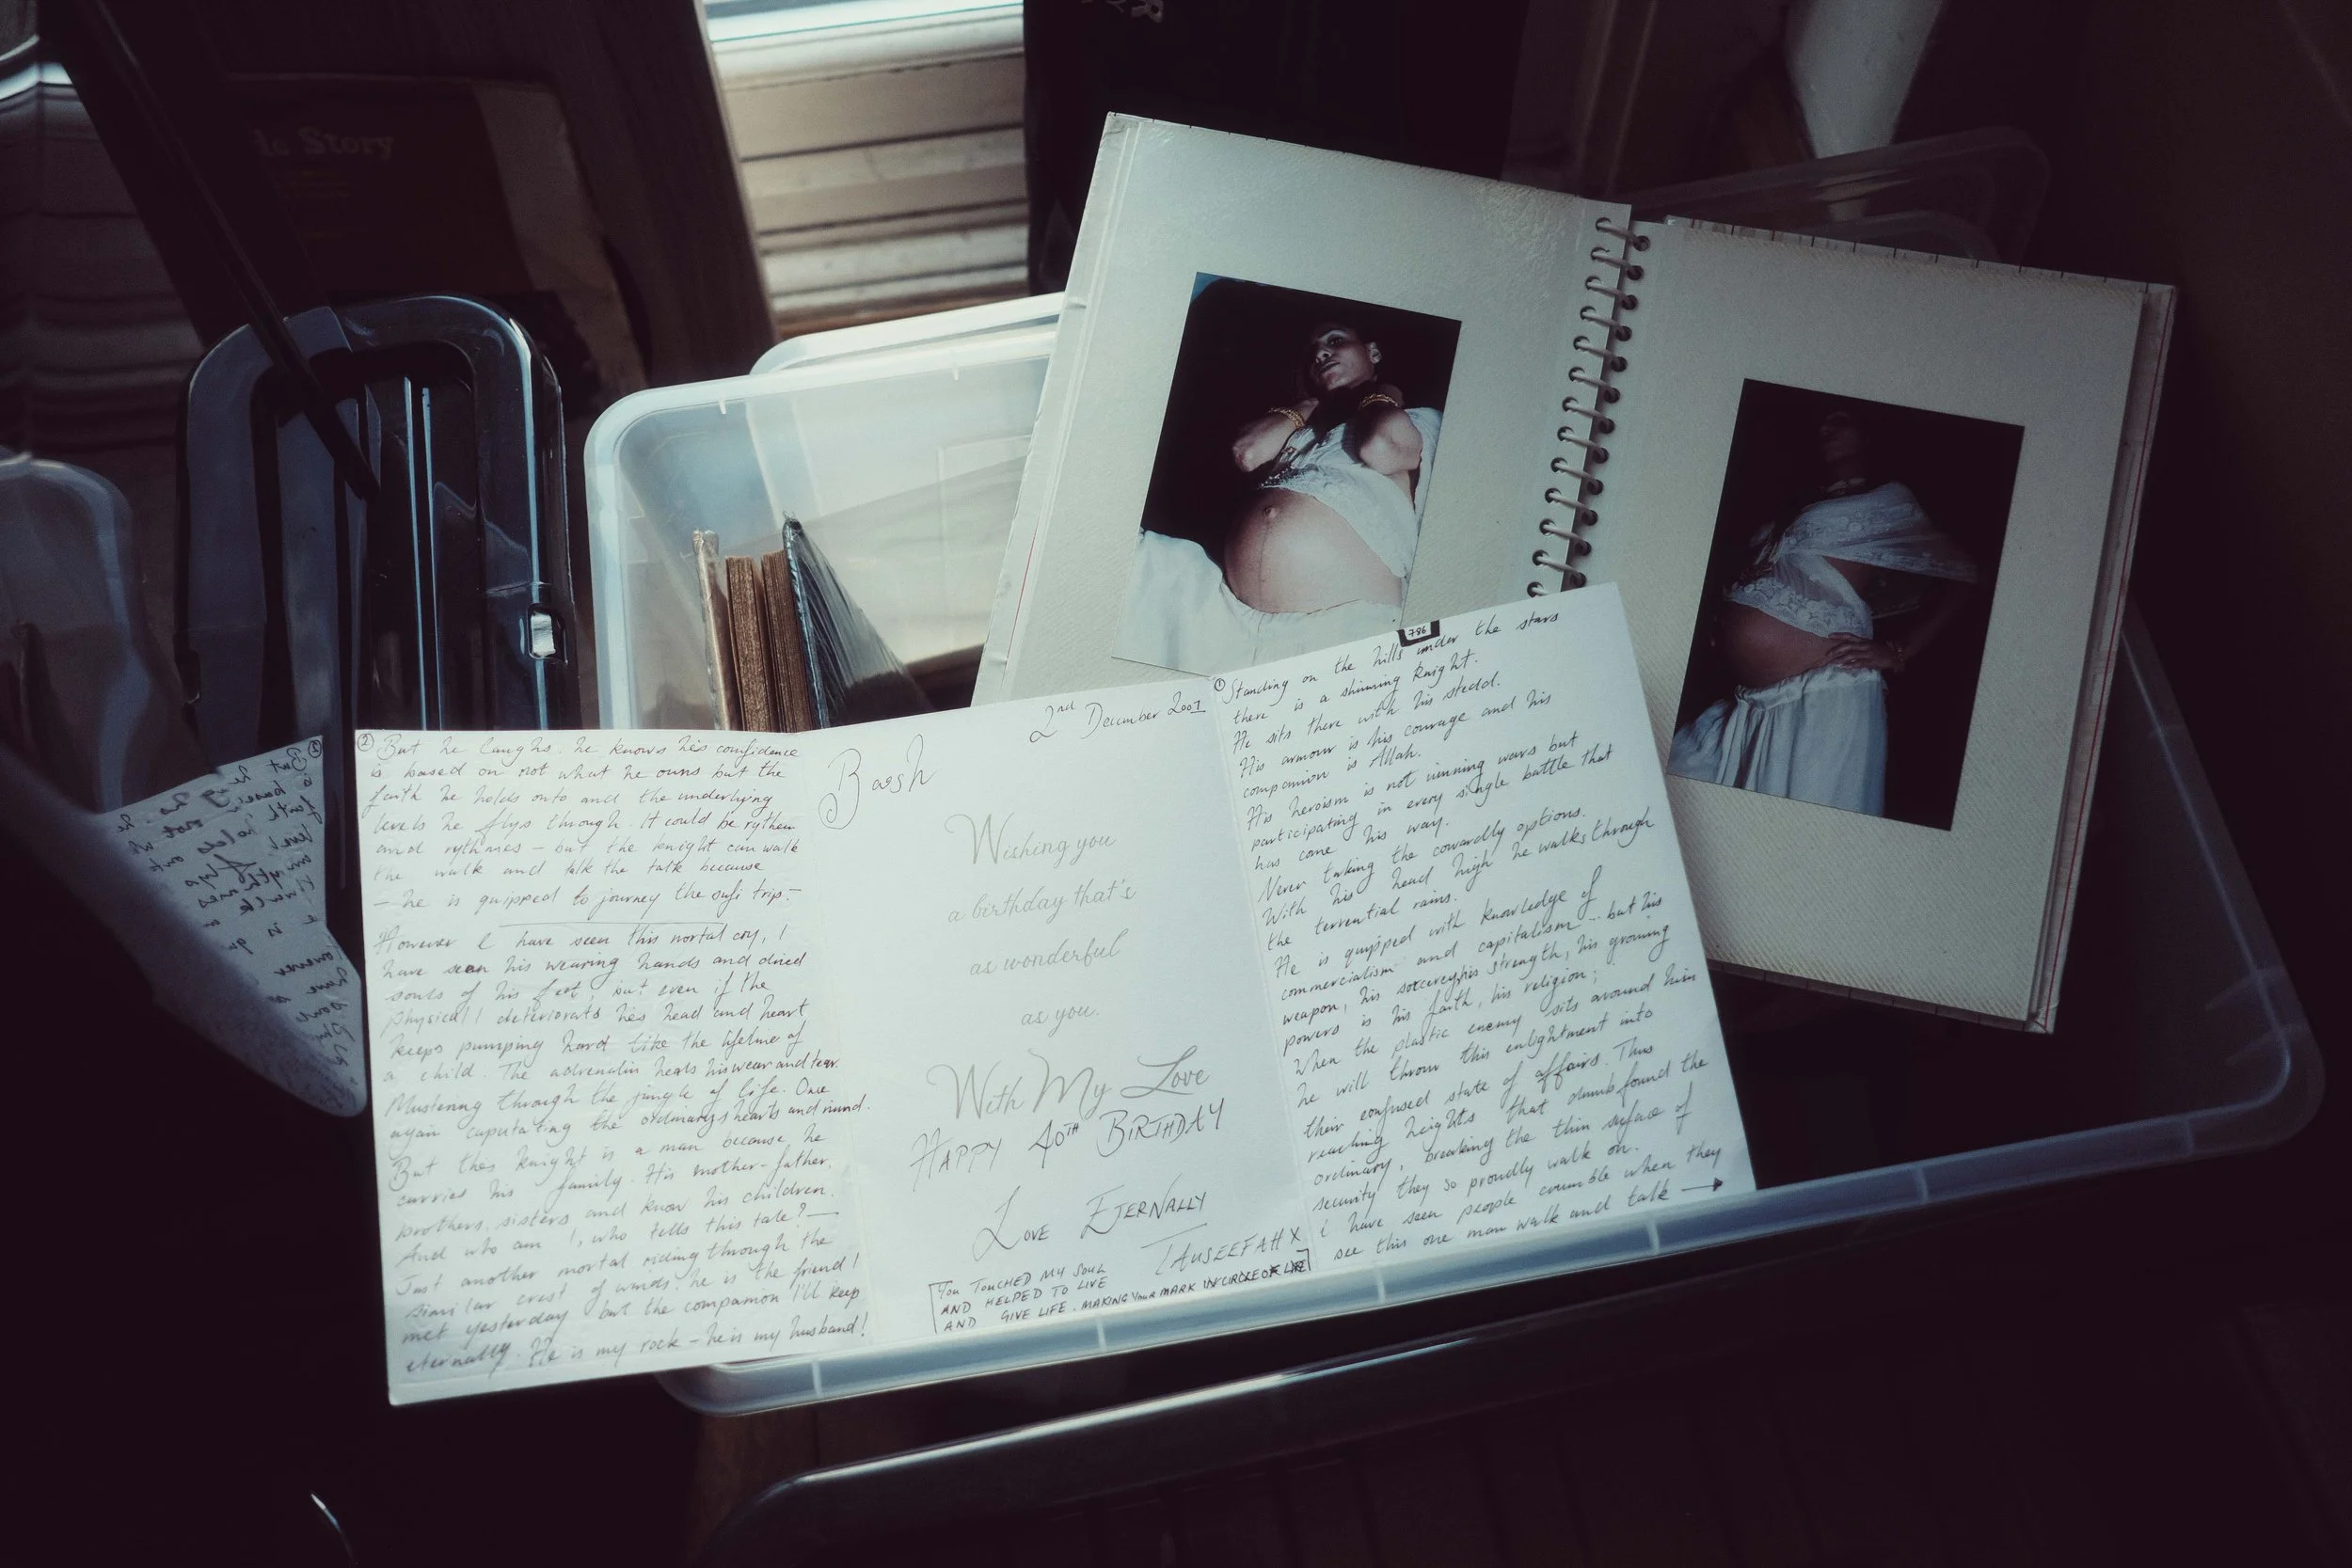 le Story
786
① Standing on the hills under the stars
there is a shinning Knight.
He sits there with his stedd.
His armour is his courage and his
companion is Allah.
His heroism is not winning wars but
participating in every single battle that
has come his way.
Never taking the cowardly options.
With his head high he walks through
the terrential rains.
He is quipped with knowledge of
commercialism and capitalism ... but his
weapon, his sorcery, his strength, his growing
powers is his faith, his religion;
When the plastic enemy sits around him
he will throw this enlightment into
their confused state of affairs. Thus
reaching heights that dumbfound the
ordinary, breaking the thin surface of
security they so proudly walk on.
i have seen people crumble when they
see this one man walk and talk →
② But he laughs. he knows his confidence
is based on not what he owns but the
faith he holds onto and the underlying
levels he flys through. It could be rythem
and rythmes - but the knight can walk
the walk and talk the talk because
- he is quipped to journey the sufi trip. -
However I have seen this mortal cry, I
have seen his wearing hands and dried
souls of his feet, but even if the
physical deteriorats his head and heart
keeps pumping hard like the lifeline of
a child. The adrenalin heals his wear and tear.
Mustering through the jungle of life. Once
again caputating the ordinarys hearts and mind.
But this Knight is a man because he
carries his family. His mother-father,
brothers, sisters and know his children.
And who am I, who tells this tale? —
Just another mortal riding through the
similar crest of winds. he is the friend I
met yesterday but the companion I'll keep
eternally. He is my rock - he is my husband!
2nd December 2001
Bash
Wishing you
a birthday that's
as wonderful
as you.
With My Love
HAPPY 40TH BIRTHDAY
LOVE ETERNALLY
TAUSEEFAH X
YOU TOUCHED MY SOUL
AND HELPED TO LIVE
AND GIVE LIFE. MAKING YOUR MARK IN CIRCLE OF LIFE